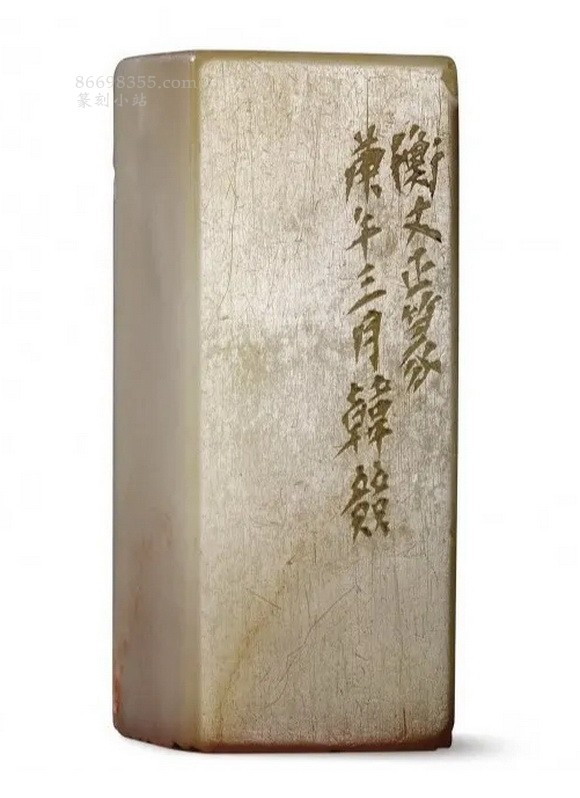 86698355.com
篆刻小站
衡丈正篆
庚午三月韓競